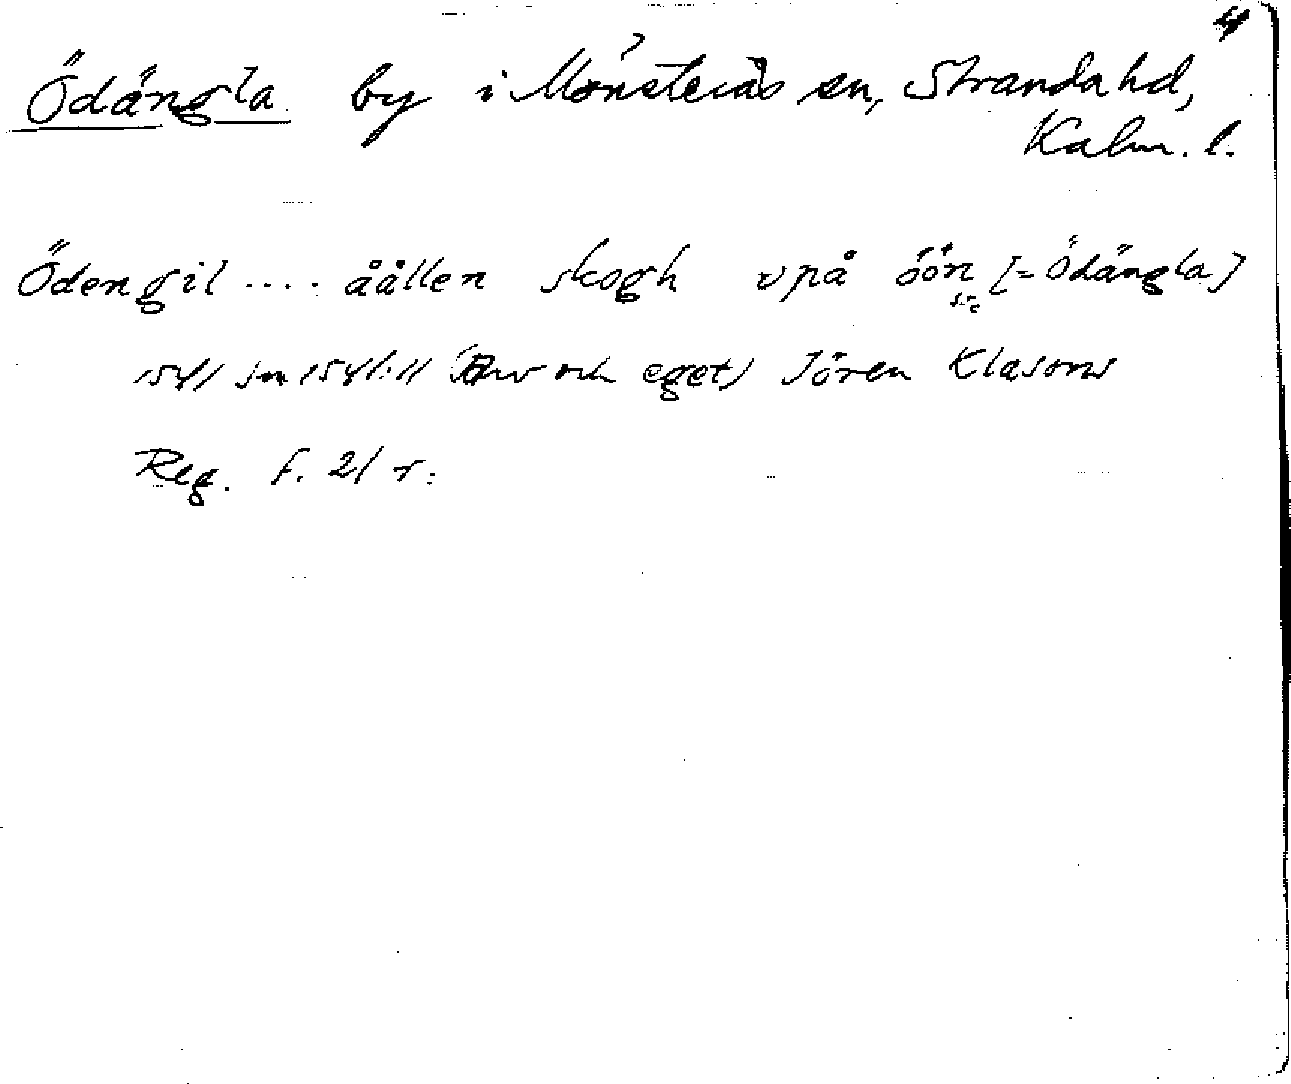 4
Ödängla by i Mönsterås sn, Stranda hd,
Kalm. l.
Ödengil .... åållen skogh vpå öön [= Ödängla]
sic
1541 Sm 1541:11 (Arv och eget) Jören Klasons
Reg. f. 21 r.